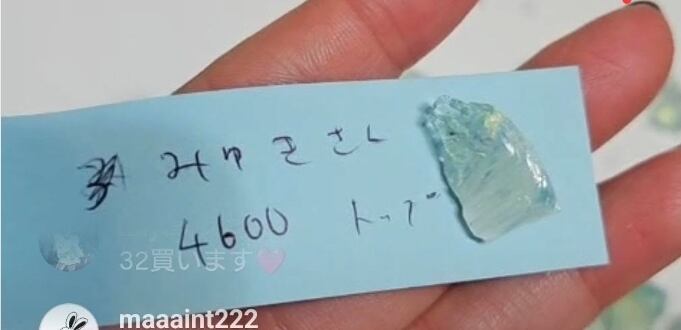 みゆきさん
4600 トップ
32買います🩷
maaaint222